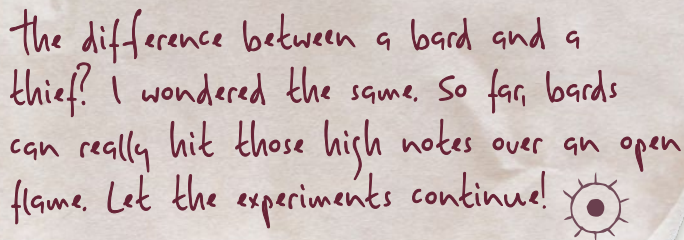 The difference between a bard and a
thief? I wondered the same. So far, bards
can really hit those high notes over an open
flame. Let the experiments continue!